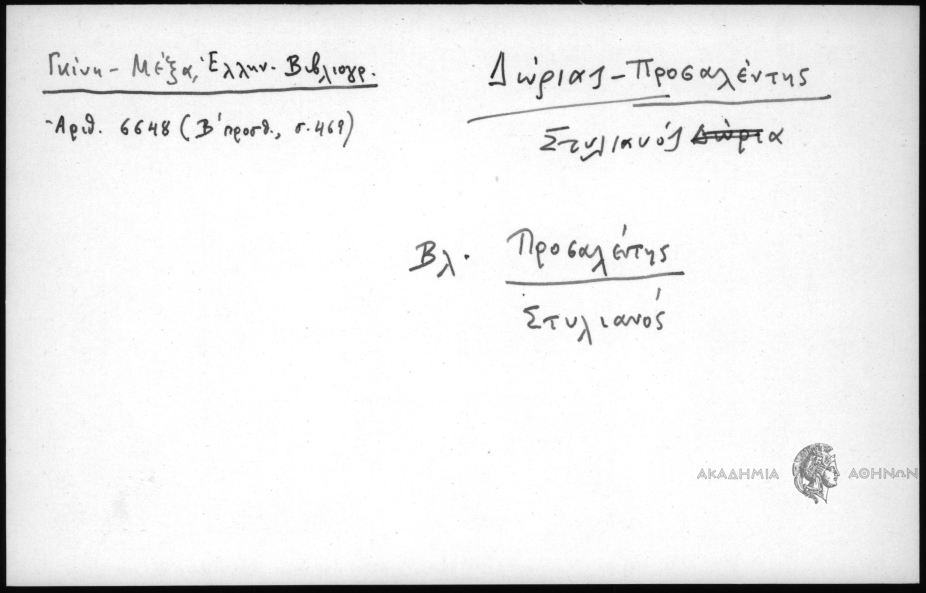 Γκίνη - Μέξα, Ἑλλην. Βιβλιογρ.
Ἀριθ. 6648 (Β' προσθ., σ. 469)
Δώριας - Προσαλέντης
Στυλιανός Δώρια
Βλ. Προσαλέντης
Στυλιανός
ΑΚΑΔΗΜΙΑ ΑΘΗΝΩΝ